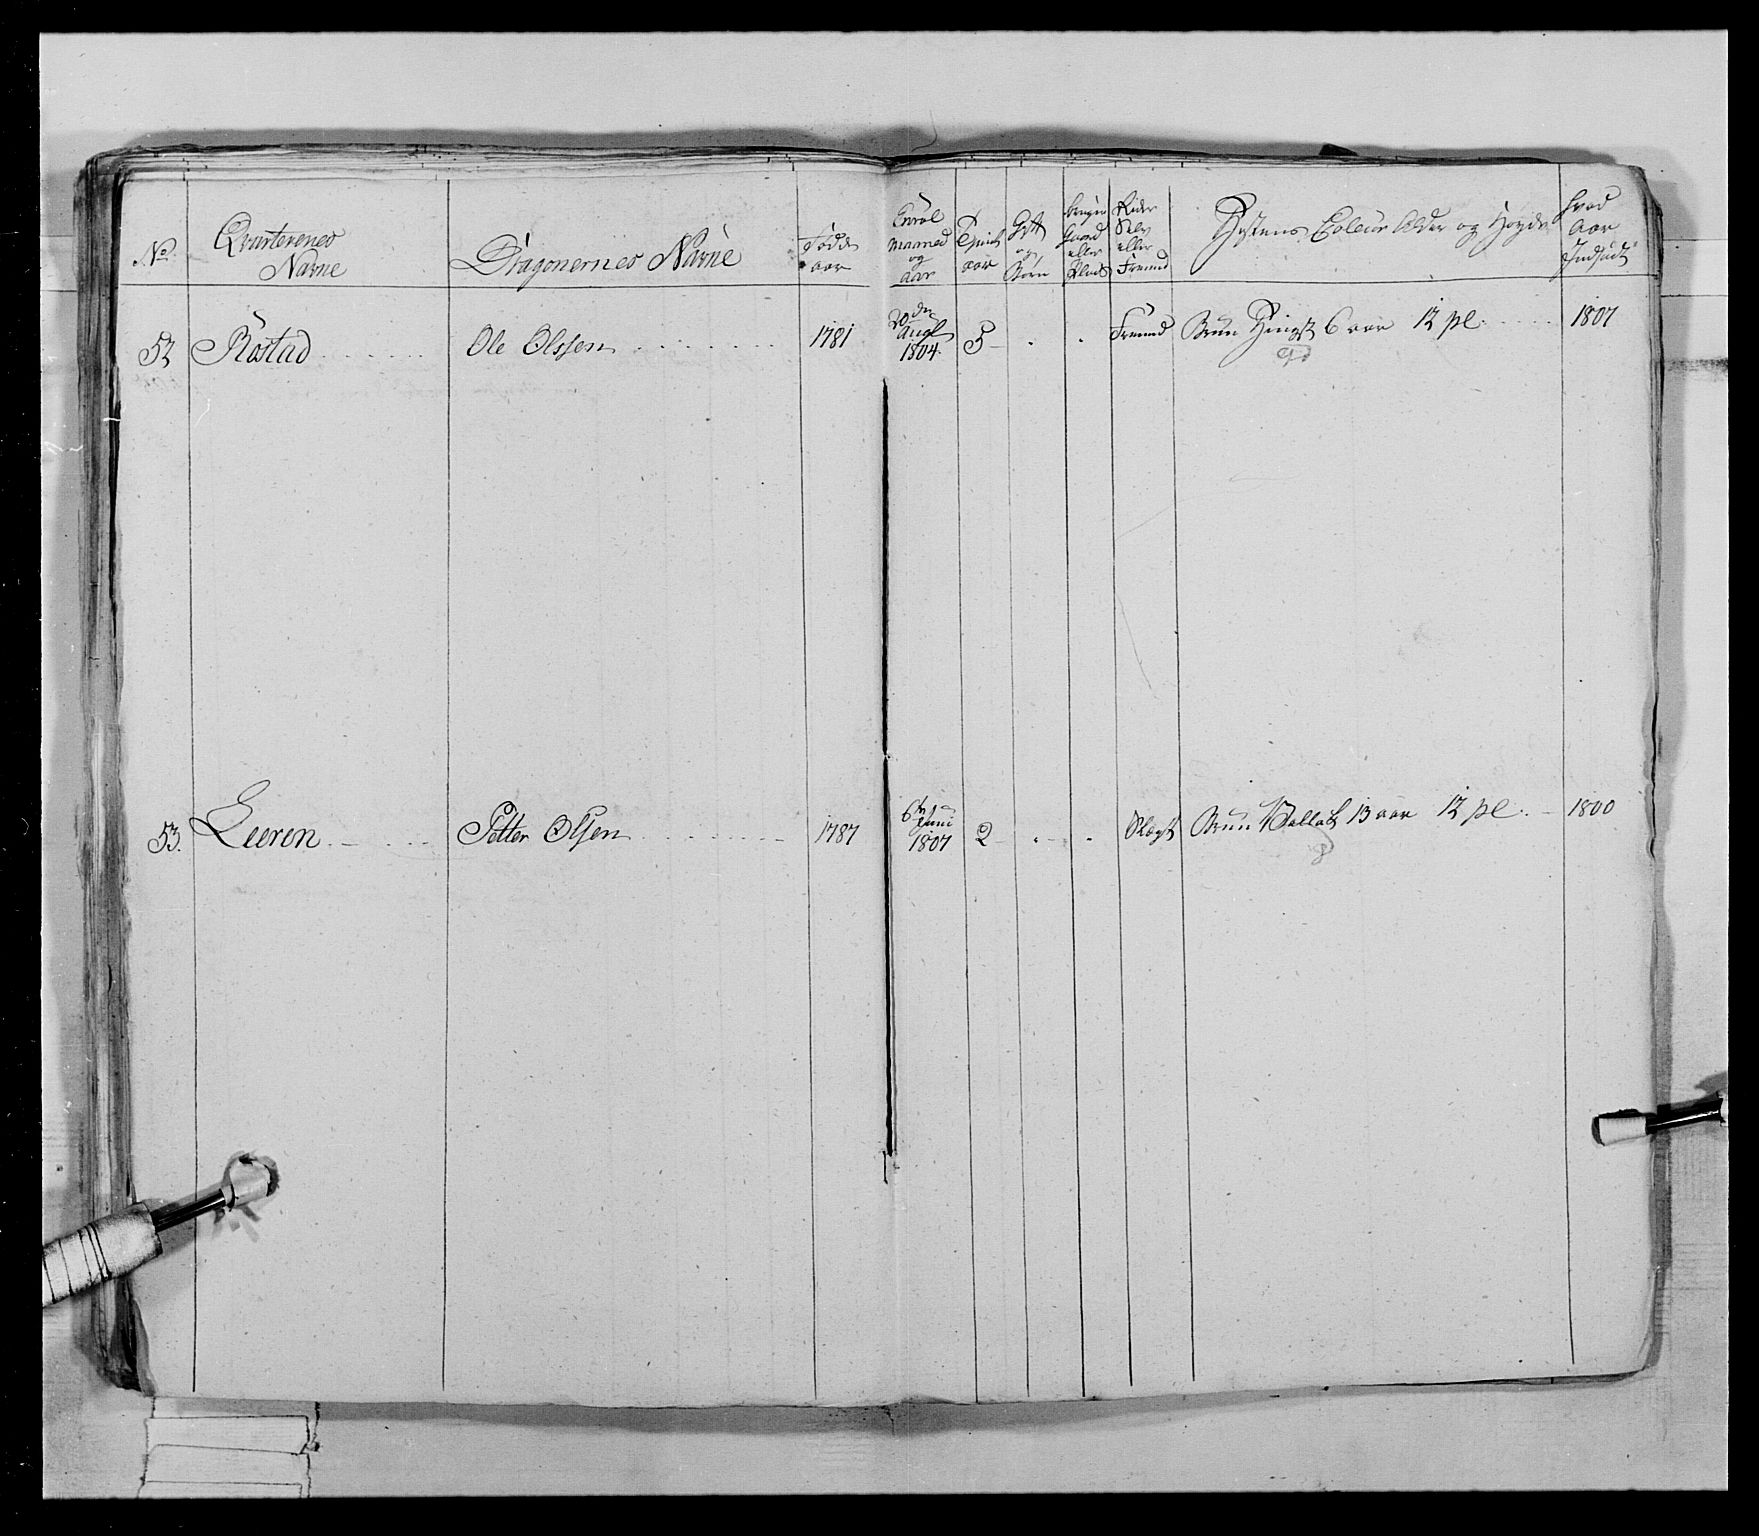 No. Qvarterenes Navne Dragonernes Navne Fødde aar Enrol Maaned og aar Tjenst aar Gift og Børn bruger Gaard eller Plads Rider Selv eller Fremd Hestens Coleur Alder og Høyde hvad Aar Indsadt
52 Rostad Ole Olssen 1781 20de Augl 1804 5 Fremd Brun Hingst 6 aar 12 pl 1807
53. Leeren Petter Olsen 1787 6te Juni 1807 2 Brun Vallak 13 aar 12 pl. 1800